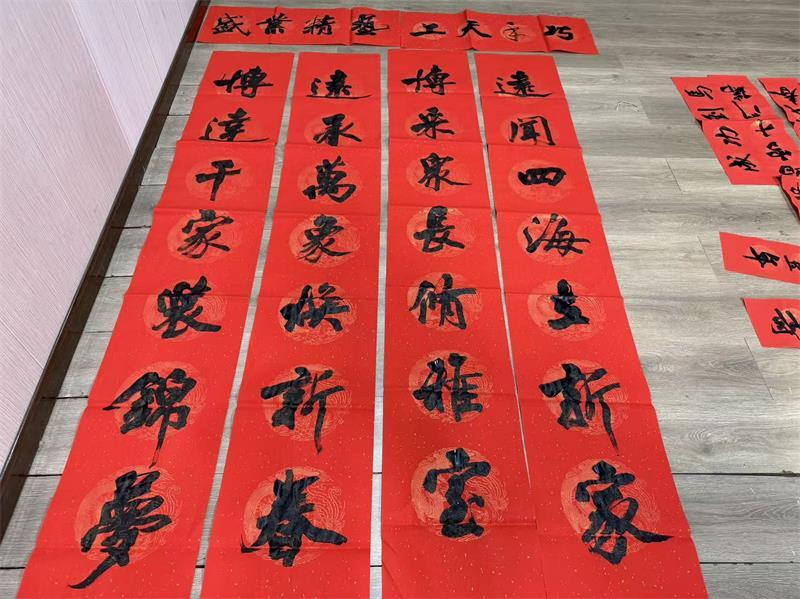 巧手天工藝精業盛
遠聞四海立新家
博采衆長修雅室
遠承萬象煥新春
博達千家裝錦夢
馬到成功